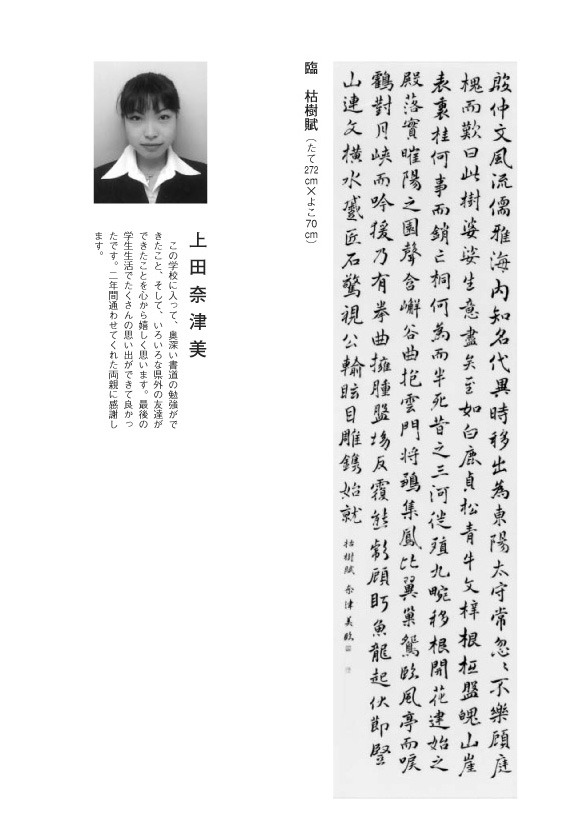 殷仲文風流儒雅海内知名代異時移出為東陽太守常忽〻不樂顧庭
槐而歎曰此樹婆娑生意盡矣至如白鹿貞松青牛文梓根柢盤魄山崖
表裏桂何事而銷亡桐何為而半死昔之三河徙殖九畹移根開花建始之
殿落實睢陽之園聲含嶰谷曲抱雲門将鶵集鳳比翼巢鴛臨風亭而唳
鶴對月峡而吟猨乃有拳曲擁腫盤坳反覆熊彪顧盻魚龍起伏節竪
山連文横水蹙匠石驚視公輸眩目雕鎸始就
枯樹賦 奈津美臨
臨 枯樹賦(たて272cm×よこ70cm)
上田奈津美
この学校に入って、奥深い書道の勉強がで
きたこと、そして、いろいろな県外の友達が
できたことを心から嬉しく思います。最後の
学生生活でたくさんの思い出ができて良かっ
たです。二年間通わせてくれた両親に感謝し
ます。